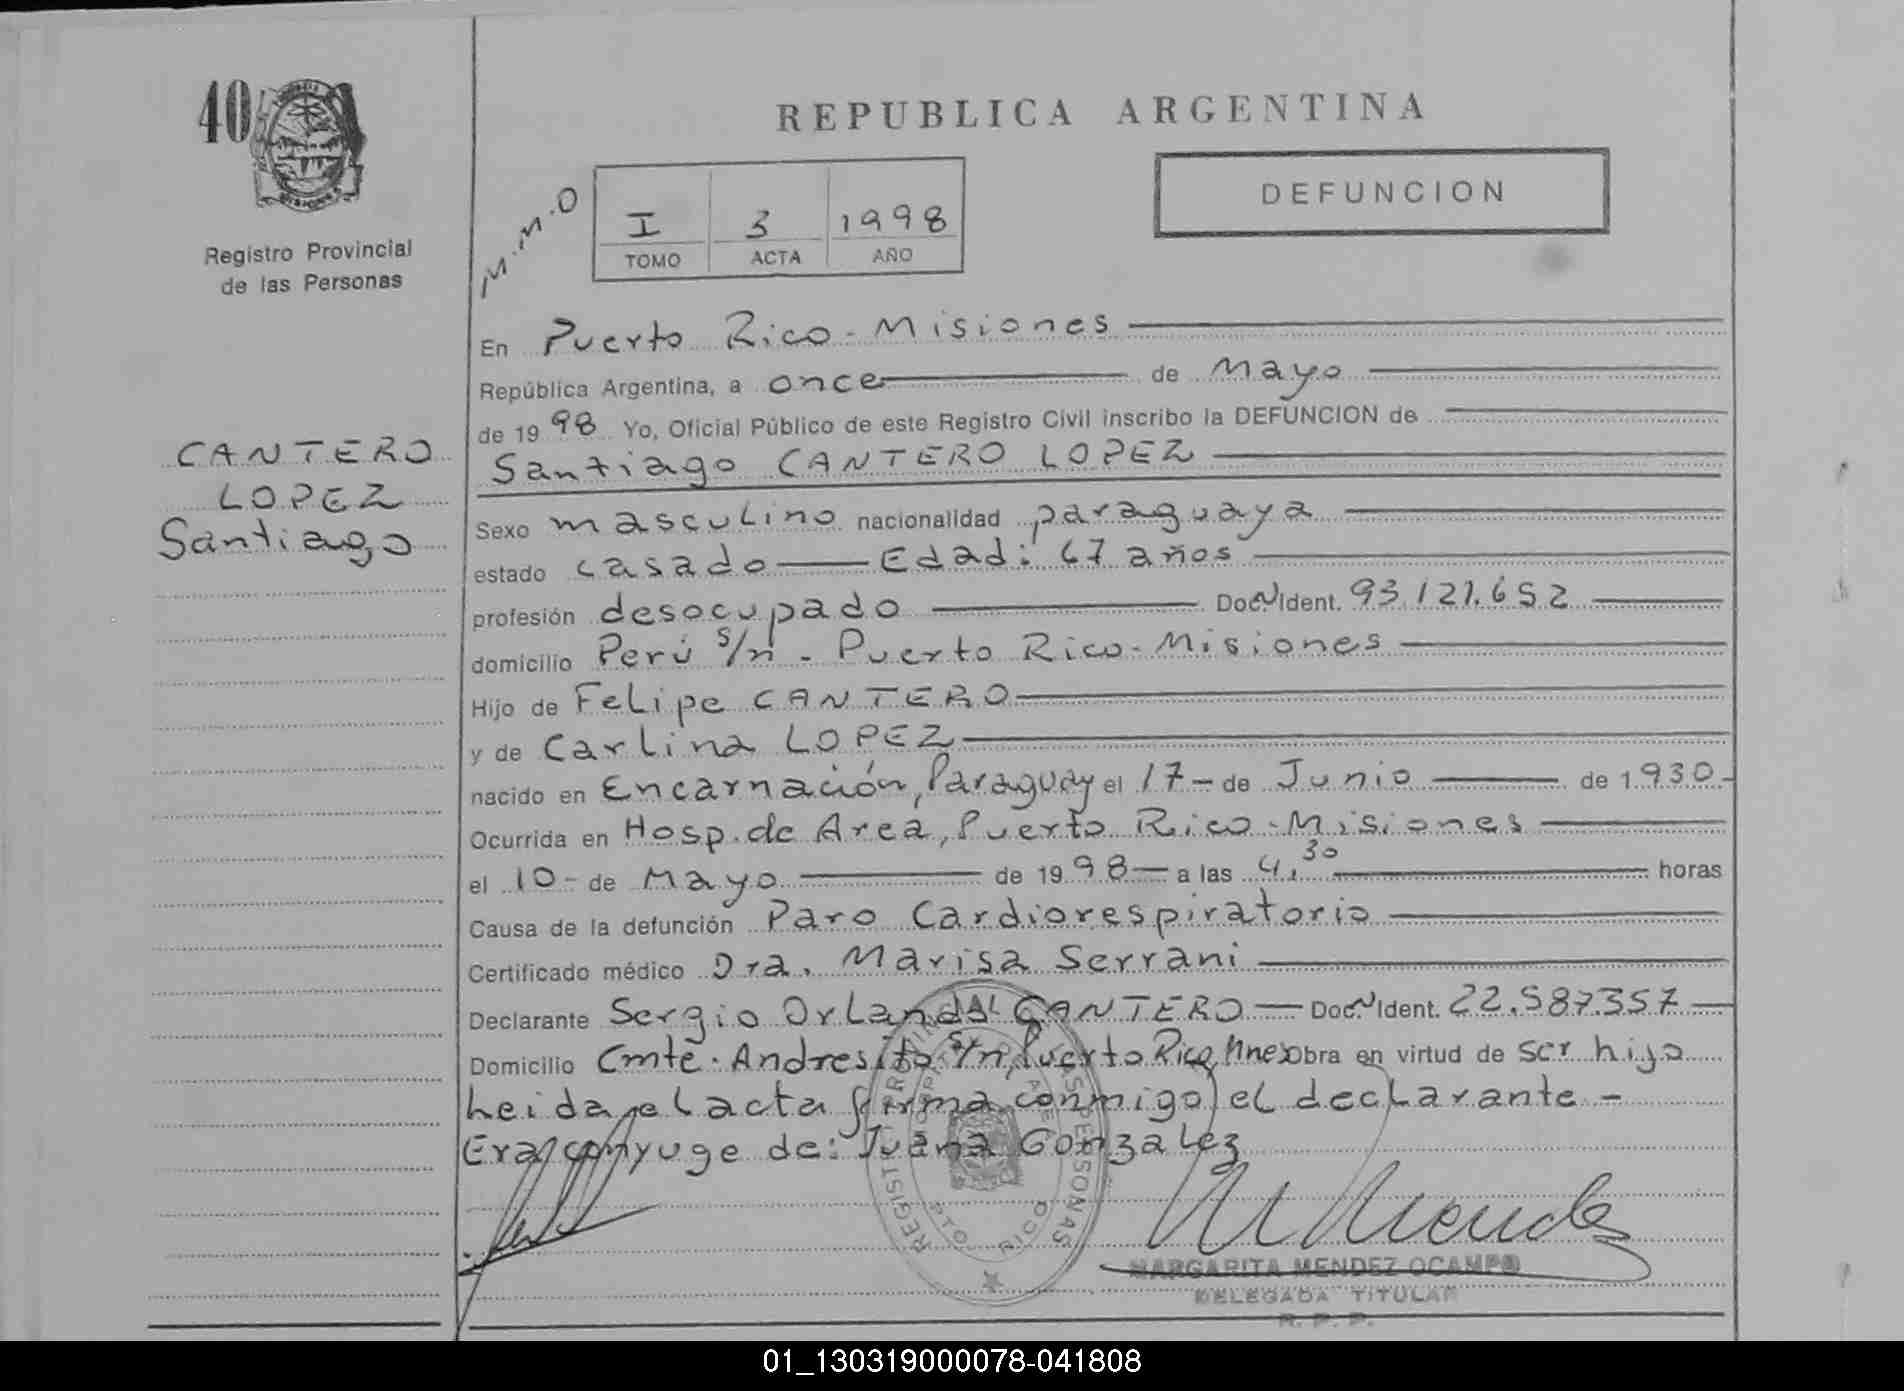 40
Registro Provincial
de las Personas
CANTERO
LOPEZ
Santiago
REPUBLICA ARGENTINA
M.M.O
I 3 1998
TOMO ACTA AÑO
DEFUNCION
En Puerto Rico - Misiones
República Argentina, a once de Mayo
de 19 98 Yo, Oficial Público de este Registro Civil inscribo la DEFUNCION de
Santiago CANTERO LOPEZ
Sexo masculino nacionalidad paraguaya
estado casado — Edad: 67 años
profesión desocupado Doc. Ident. 93.121.652
domicilio Perú s/n - Puerto Rico - Misiones
Hijo de Felipe CANTERO
y de Carlina LOPEZ
nacido en Encarnación, Paraguay el 17 - de Junio de 1.930-
Ocurrida en Hosp. de Area, Puerto Rico - Misiones
el 10 - de Mayo de 19 98 — a las 4,30 horas
Causa de la defunción Paro Cardiorespiratorio
Certificado médico Dra. Marisa Serrani
Declarante Sergio Orlando CANTERO — Doc. Ident. 22.587.357 —
Domicilio Cmte. Andresito s/n, Puerto Rico, Mnes Obra en virtud de ser hijo
Leida el acta firma conmigo el declarante -
Era conyuge de: Juana Gonzalez
REGISTRO PROVINCIAL DE LAS PERSONAS
HOSPITAL DE AREA
PTO RICO
M Mendez
MARGARITA MENDEZ OCAMPO
DELEGADA TITULAR
R. P. P.
01_130319000078-041808